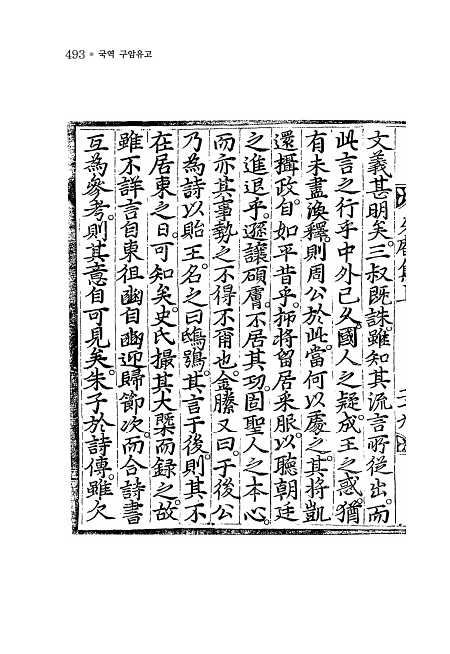 493 • 국역 구암유고
文義甚明矣。三叔旣誅。雖知其流言所從出。而
此言之行乎中外已久。國人之疑。成王之惑。猶
有未盡渙釋。則周公於此。當何以處之。其將凱
還攝政。自如平昔乎。抑將留居采服。以聽朝廷
之進退乎。遜讓碩膚。不居其功。固聖人之本心。
而亦其事勢之不得不爾也。金縢又曰。于後公
乃爲詩以貽王。名之曰鴟鴞。其言于後。則其不
在居東之日。可知矣。史氏撮其大槩而錄之。故
雖不詳言自東徂豳自豳迎歸節次。而合詩書
互為參考。則其意自可見矣。朱子於詩傳。雖欠